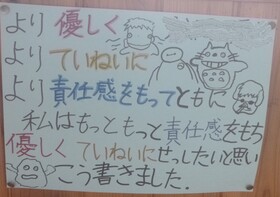 より優しく
よりていねいに
より責任感をもってともに
私はもっともっと責任感をもち
優しくていねいにせっしたいと思い
こう書きました.